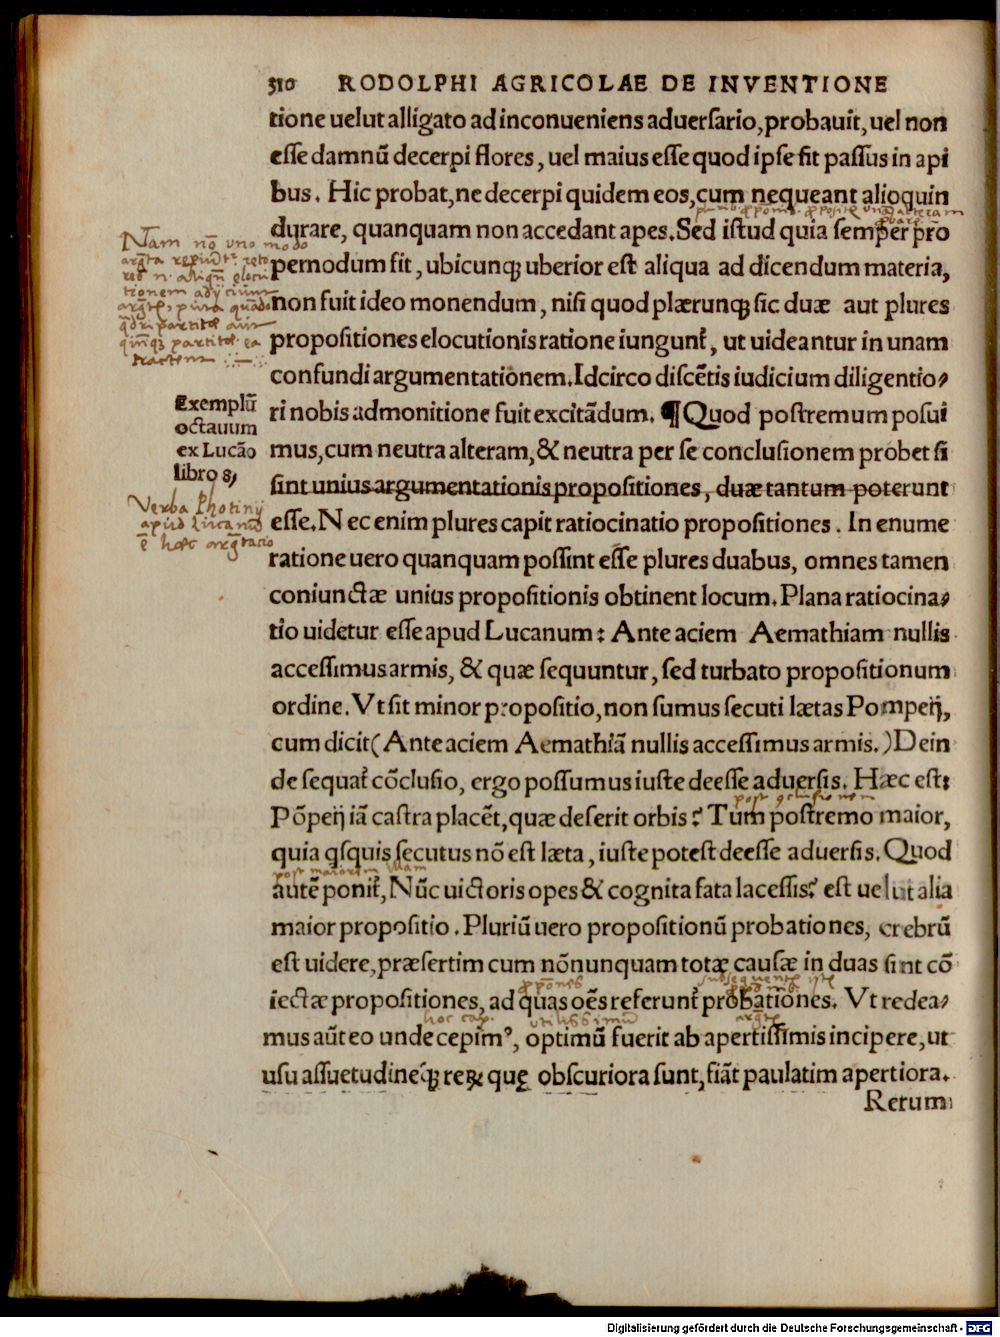 310 RODOLPHI AGRICOLAE DE INVENTIONE
tione uelut alligato ad inconueniens aduersario, probauit, uel non
esse damnū decerpi flores, uel maius esse quod ipse fit passus in api
bus. Hic probat, ne decerpi quidem eos, cum nequeant alioquin
durare, quanquam non accedant apes. Sed istud quia semper pro
pemodum fit, ubicunq; uberior est aliqua ad dicendum materia,
non fuit ideo monendum, nisi quod plærunq; sic duæ aut plures
propositiones elocutionis ratione iungunt̃, ut uideantur in unam
confundi argumentationem. Idcirco discētis iudicium diligentio⸗
ri nobis admonitione fuit excitādum. ¶ Quod postremum posui
mus, cum neutra alteram, & neutra per se conclusionem probet si
sint unius argumentationis propositiones, duæ tantum poterunt
esse. Nec enim plures capit ratiocinatio propositiones. In enume
ratione uero quanquam possint esse plures duabus, omnes tamen
coniunctæ unius propositionis obtinent locum. Plana ratiocina⸗
tio uidetur esse apud Lucanum: Ante aciem Aemathiam nullis
accessimus armis, & quæ sequuntur, sed turbato propositionum
ordine. Vt sit minor propositio, non sumus secuti lætas Pompeij,
cum dicit (Ante aciem Aemathiā nullis accessimus armis.) Dein
de sequat̃ cōclusio, ergo possumus iuste deesse aduersis. Hæc est:
Pōpeij iā castra placēt, quæ deserit orbis? Tum postremo maior,
quia qsquis secutus nō est læta, iuste potest deesse aduersis. Quod
autē ponit̃, Nūc uictoris opes & cognita fata lacessis? est uelut alia
maior propositio. Pluriū uero propositionū probationes, crebrū
est uidere, præsertim cum nōnunquam totæ causæ in duas sint cō
iectæ propositiones, ad quas oēs referunt̃ probationes. Vt redea⸗
mus aūt eo unde cepimꝰ, optimū fuerit ab apertissimis incipere, ut
usu assuetudineq; reꝝ quę obscuriora sunt, fiāt paulatim apertiora.
Rerum
Nam nō uno modo
Exemplū
octauum
ex Lucāo
libro 8,
Verba Photinj
apud Lucanū
ē hæc argtacio
Digitalisierung gefördert durch die Deutsche Forschungsgemeinschaft - DFG